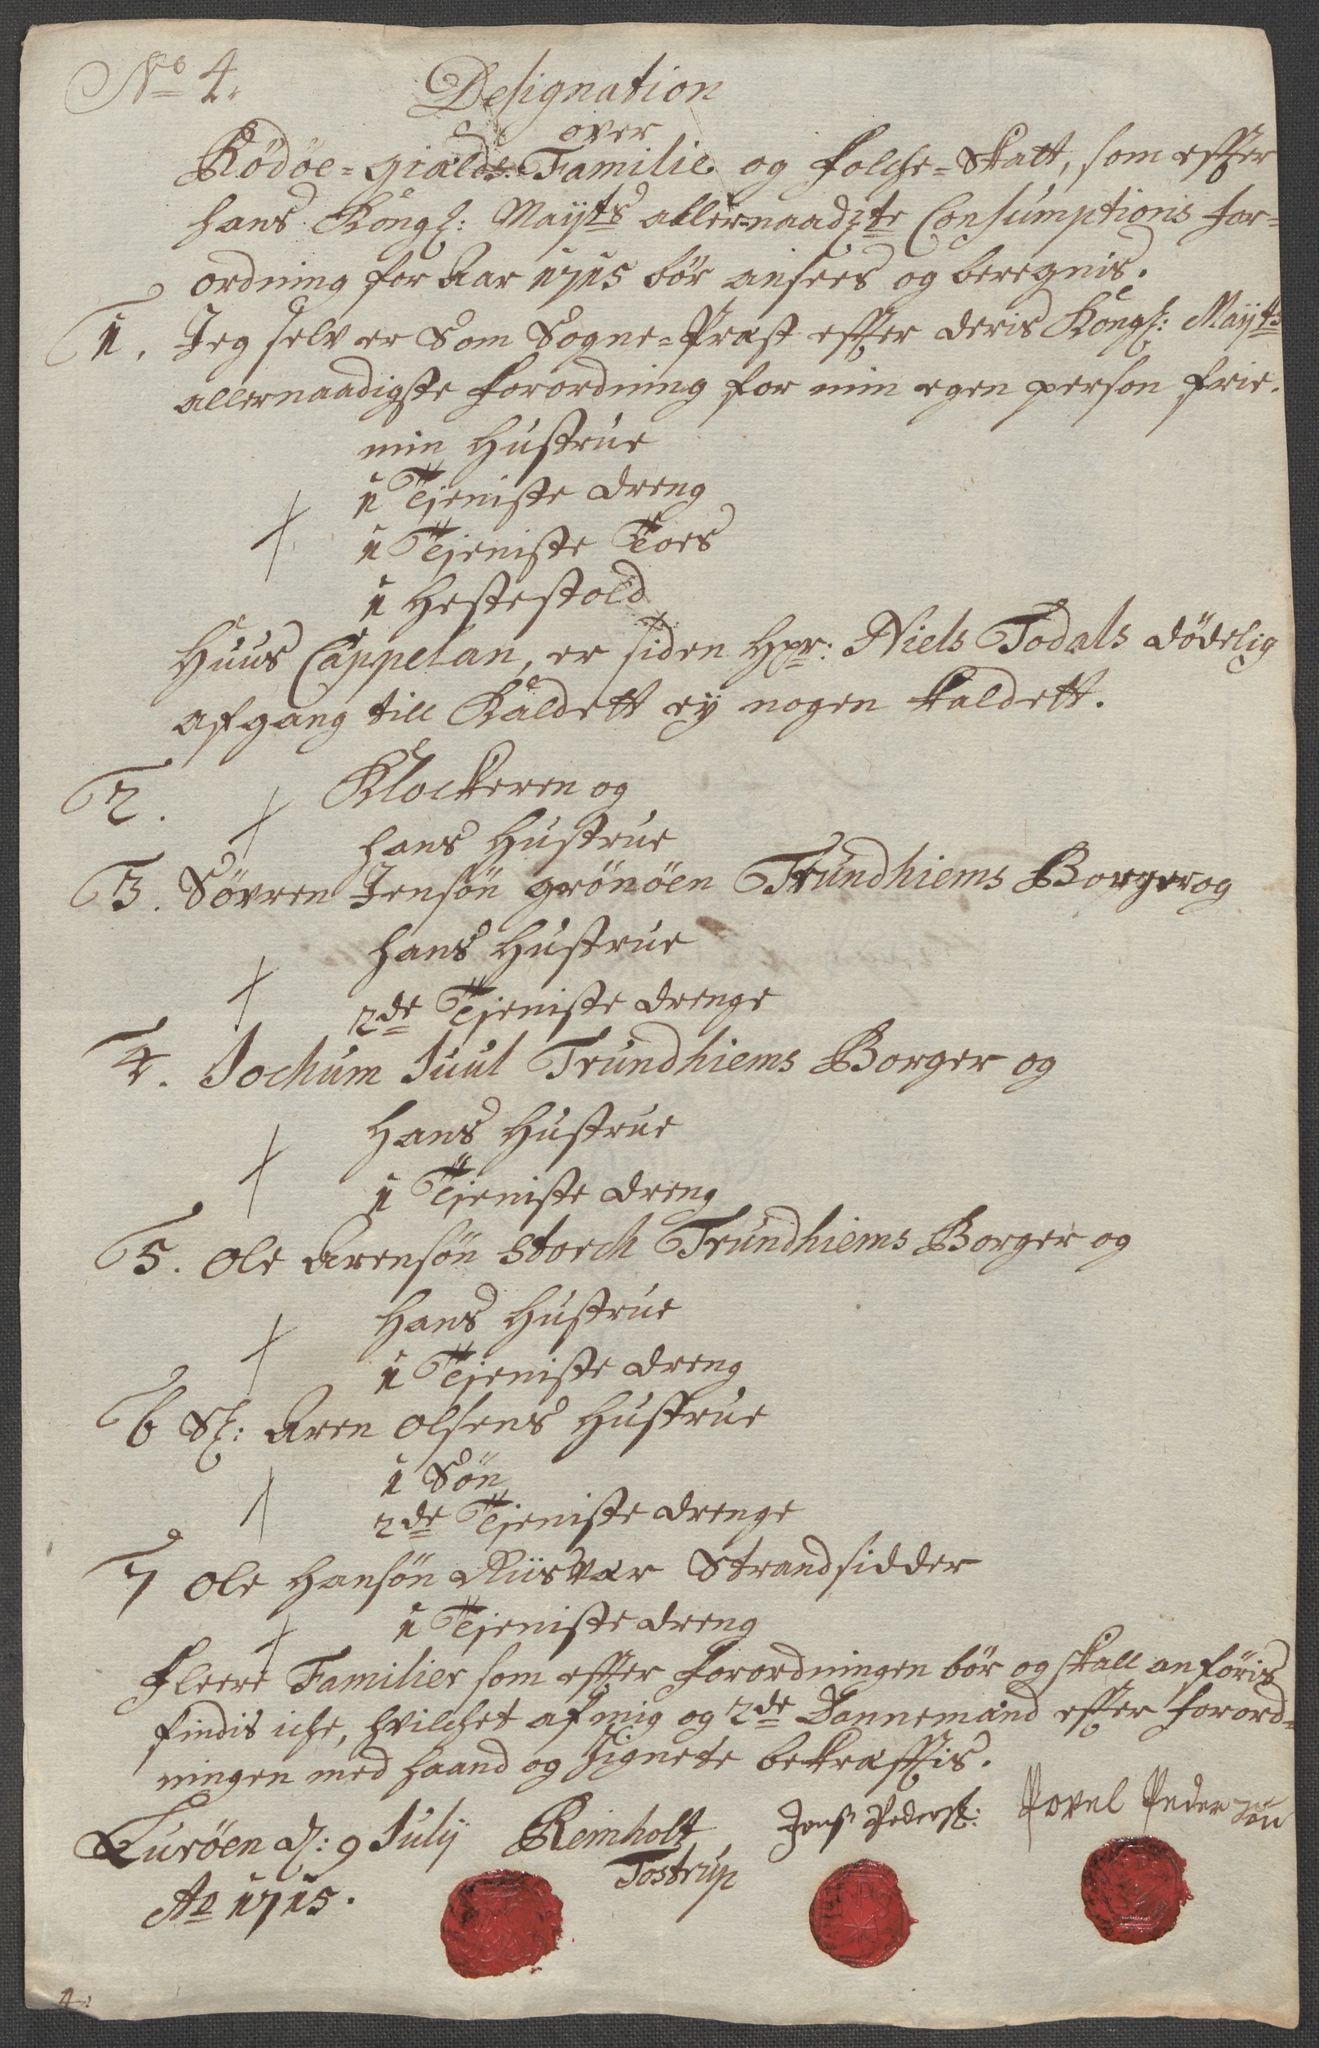 No 4.
Designation
over
Rödöe-gields Familie og Folche-Skatt, som effter
hans Kongl: Mayts allernaadgte Consumptions For=
ordning for Aar 1715 bör ansees og beregnis.
1. Jeg selv er Som Sogne-Præst effter deris Kongl: Mayts
allernaadigste Forordning for min egen person frie.
min Hustrue
1 Tjeniste dreng
1 Tjeniste Toes
1 Hestestold
Huus Cappelan, er siden Hr: Niels Todals dödelig
afgang till Kaldett ey nogen kaldett.
2. Klockeren og
hans Hustrue
3. Sövren Jensön grönöen Trundhiems Borger og
hans Hustrue
2de Tjeniste drenge
4. Jochum Juul Trundhiems Borger og
Hans Hustrue
1 Tjeniste dreng
5. Ole Arensön Storch Trundhiems Borger og
Hans Hustrue
1 Tjeniste dreng
6 Sl: Aren Olsens Hustrue
1 Sön
2de Tjeniste drenge
7 Ole Hansön Riisvær Strandsidder
1 Tjeniste dreng
Fleere Familier som effter Forordningen bör og skall anföris
findis iche, hvilchet af mig og 2de Dannemænd effter Forord=
ningen med haand og Signete bekræfftis.
Luröen d: 9 Julij Reinholt Jens Peders: Povel Peder sön
Tostrup
Ao 1715.
4.